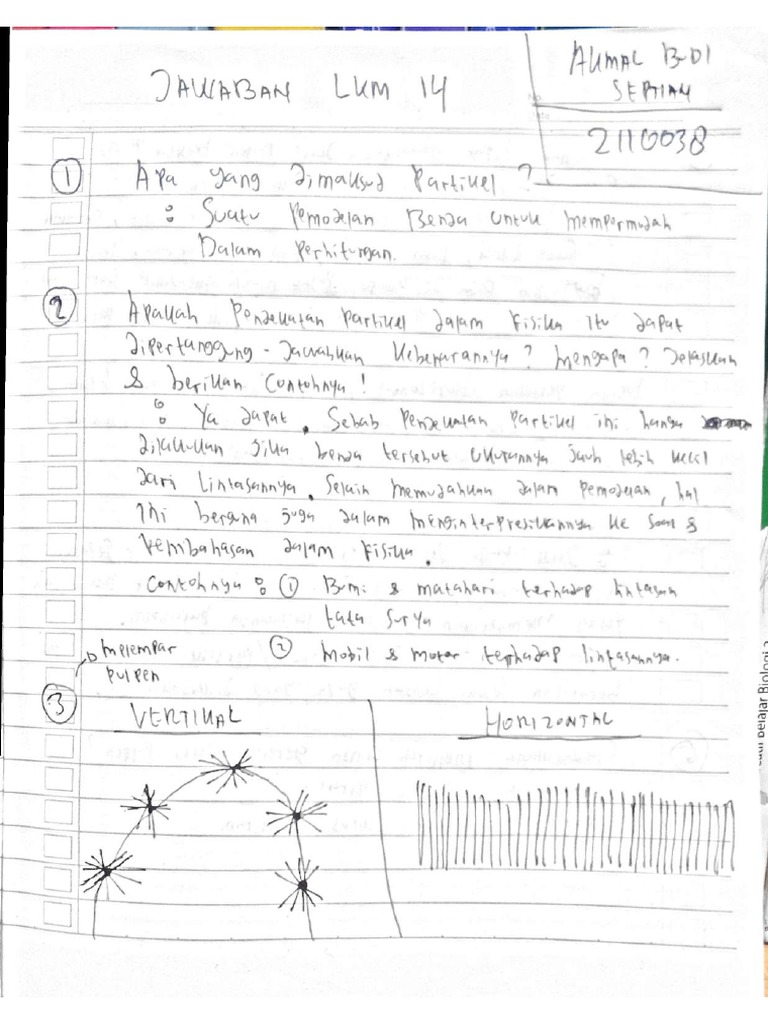 JAWABAN LKM 14
AKMAL B-01
SEPTIAN
2110038
① Apa yang dimaksud Partikel ?
: Suatu Pemodelan Benda untuk mempermudah
Dalam Perhitungan.
② Apakah Pendekatan Partikel dalam Fisika itu dapat
dipertanggung-Jawabkan Kebenarannya ? Mengapa ? Jelaskan
& berikan Contohnya !
: Ya dapat. Sebab Pendekatan Partikel ini hanya
dilakukan Jika benda tersebut Ukurannya Jauh lebih kecil
dari Lintasannya. Selain memudahkan dalam Pemodelan, hal
Ini berguna Juga dalam menginterpresikannya ke Soal &
Pembahasan dalam Fisika.
Contohnya : ① Bumi & matahari terhadap lintasan
tata surya
② Mobil & motor terhadap lintasannya.
melempar
pulpen
③ VERTIKAL HORIZONTAL
Belajar Biologi 2